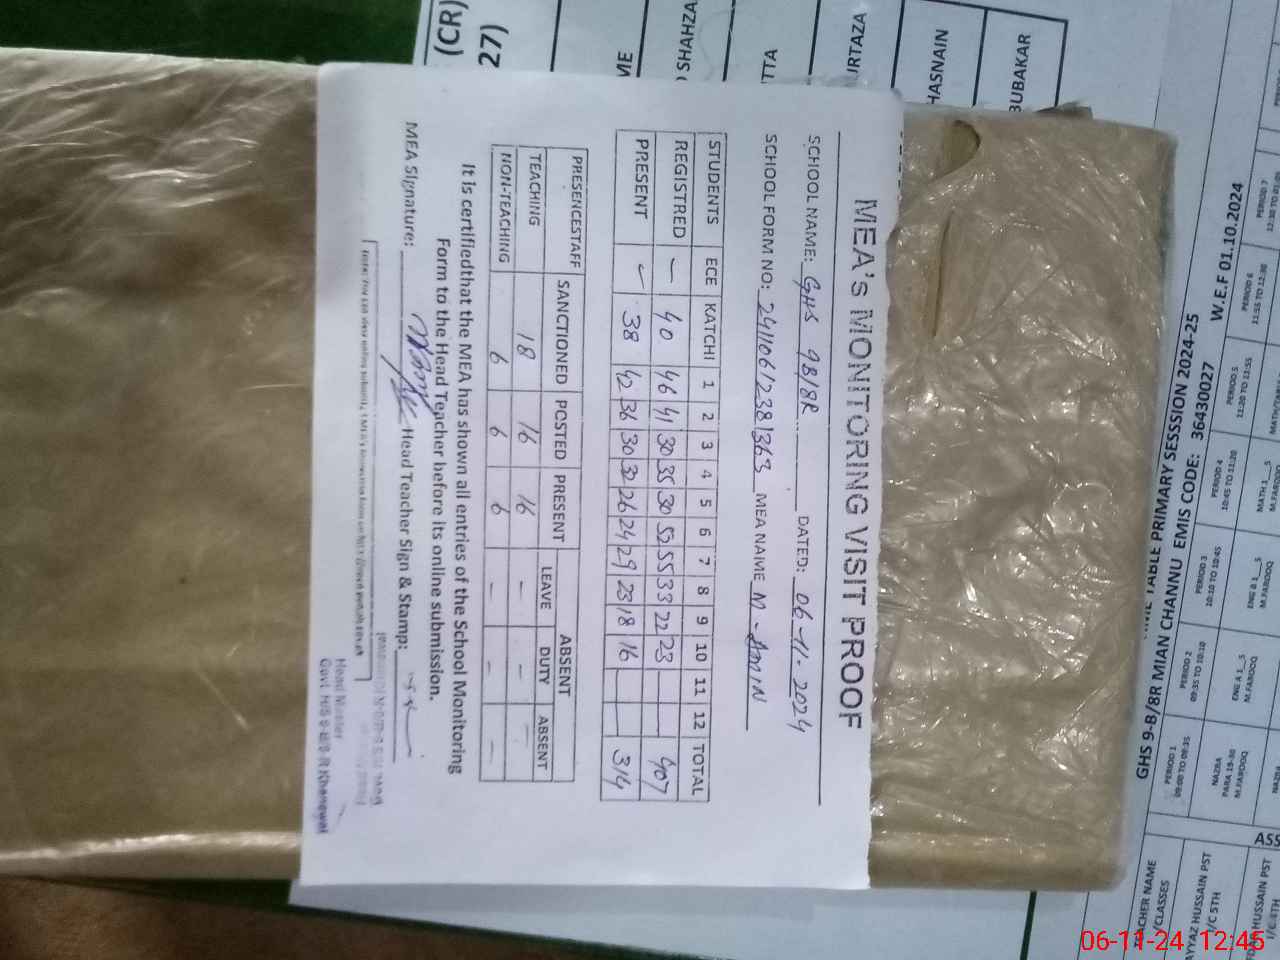 MEA's MONITORING VISIT PROOF
SCHOOL NAME: GHS 9B/8R DATED: 06-11-2024
SCHOOL FORM NO: 2411061238 1363 MEA NAME M-Amin
STUDENTS ECE KATCHI 1 2 3 4 5 6 7 8 9 10 11 12 TOTAL
REGISTRED — 40 46 41 30 35 30 52 55 33 22 23 407
PRESENT — 38 42 36 30 32 26 24 29 23 18 16 314
PRESENCESTAFF SANCTIONED POSTED PRESENT ABSENT
LEAVE DUTY ABSENT
TEACHING 18 16 16 - - -
NON-TEACHING 6 6 6 - - -
It is certifiedthat the MEA has shown all entries of the School Monitoring
Form to the Head Teacher before its online submission.
MEA Signature: Head Teacher Sign & Stamp:
Head Master
Govt. H/S 9-B/8-R Khanewal
(CR)
27)
SHAHZA
URTAZA
HASNAIN
BUBAKAR
TABLE PRIMARY SESSSION 2024-25
GHS 9-B/8R MIAN CHANNU EMIS CODE: 36430027 W.E.F 01.10.2024
PERIOD 1 PERIOD 2 PERIOD 3 PERIOD 4 PERIOD 5 PERIOD 6 PERIOD 7
09:00 TO 09:35 09:35 TO 10:10 10:10 TO 10:45 10:45 TO 11:20 11:20 TO 11:55 11:55 TO 12:30
NAZRA ENG A 1__5 ENG B 1__5 MATH 1__5
PARA 19-30 M.FAROOQ M.FAROOQ
M.FAROOQ
TEACHER NAME
/CLASSES
AYYAZ HUSSAIN PST
I/C 5TH
HUSSAIN PST
I/C 4TH
ASS
06-11-24 12:45